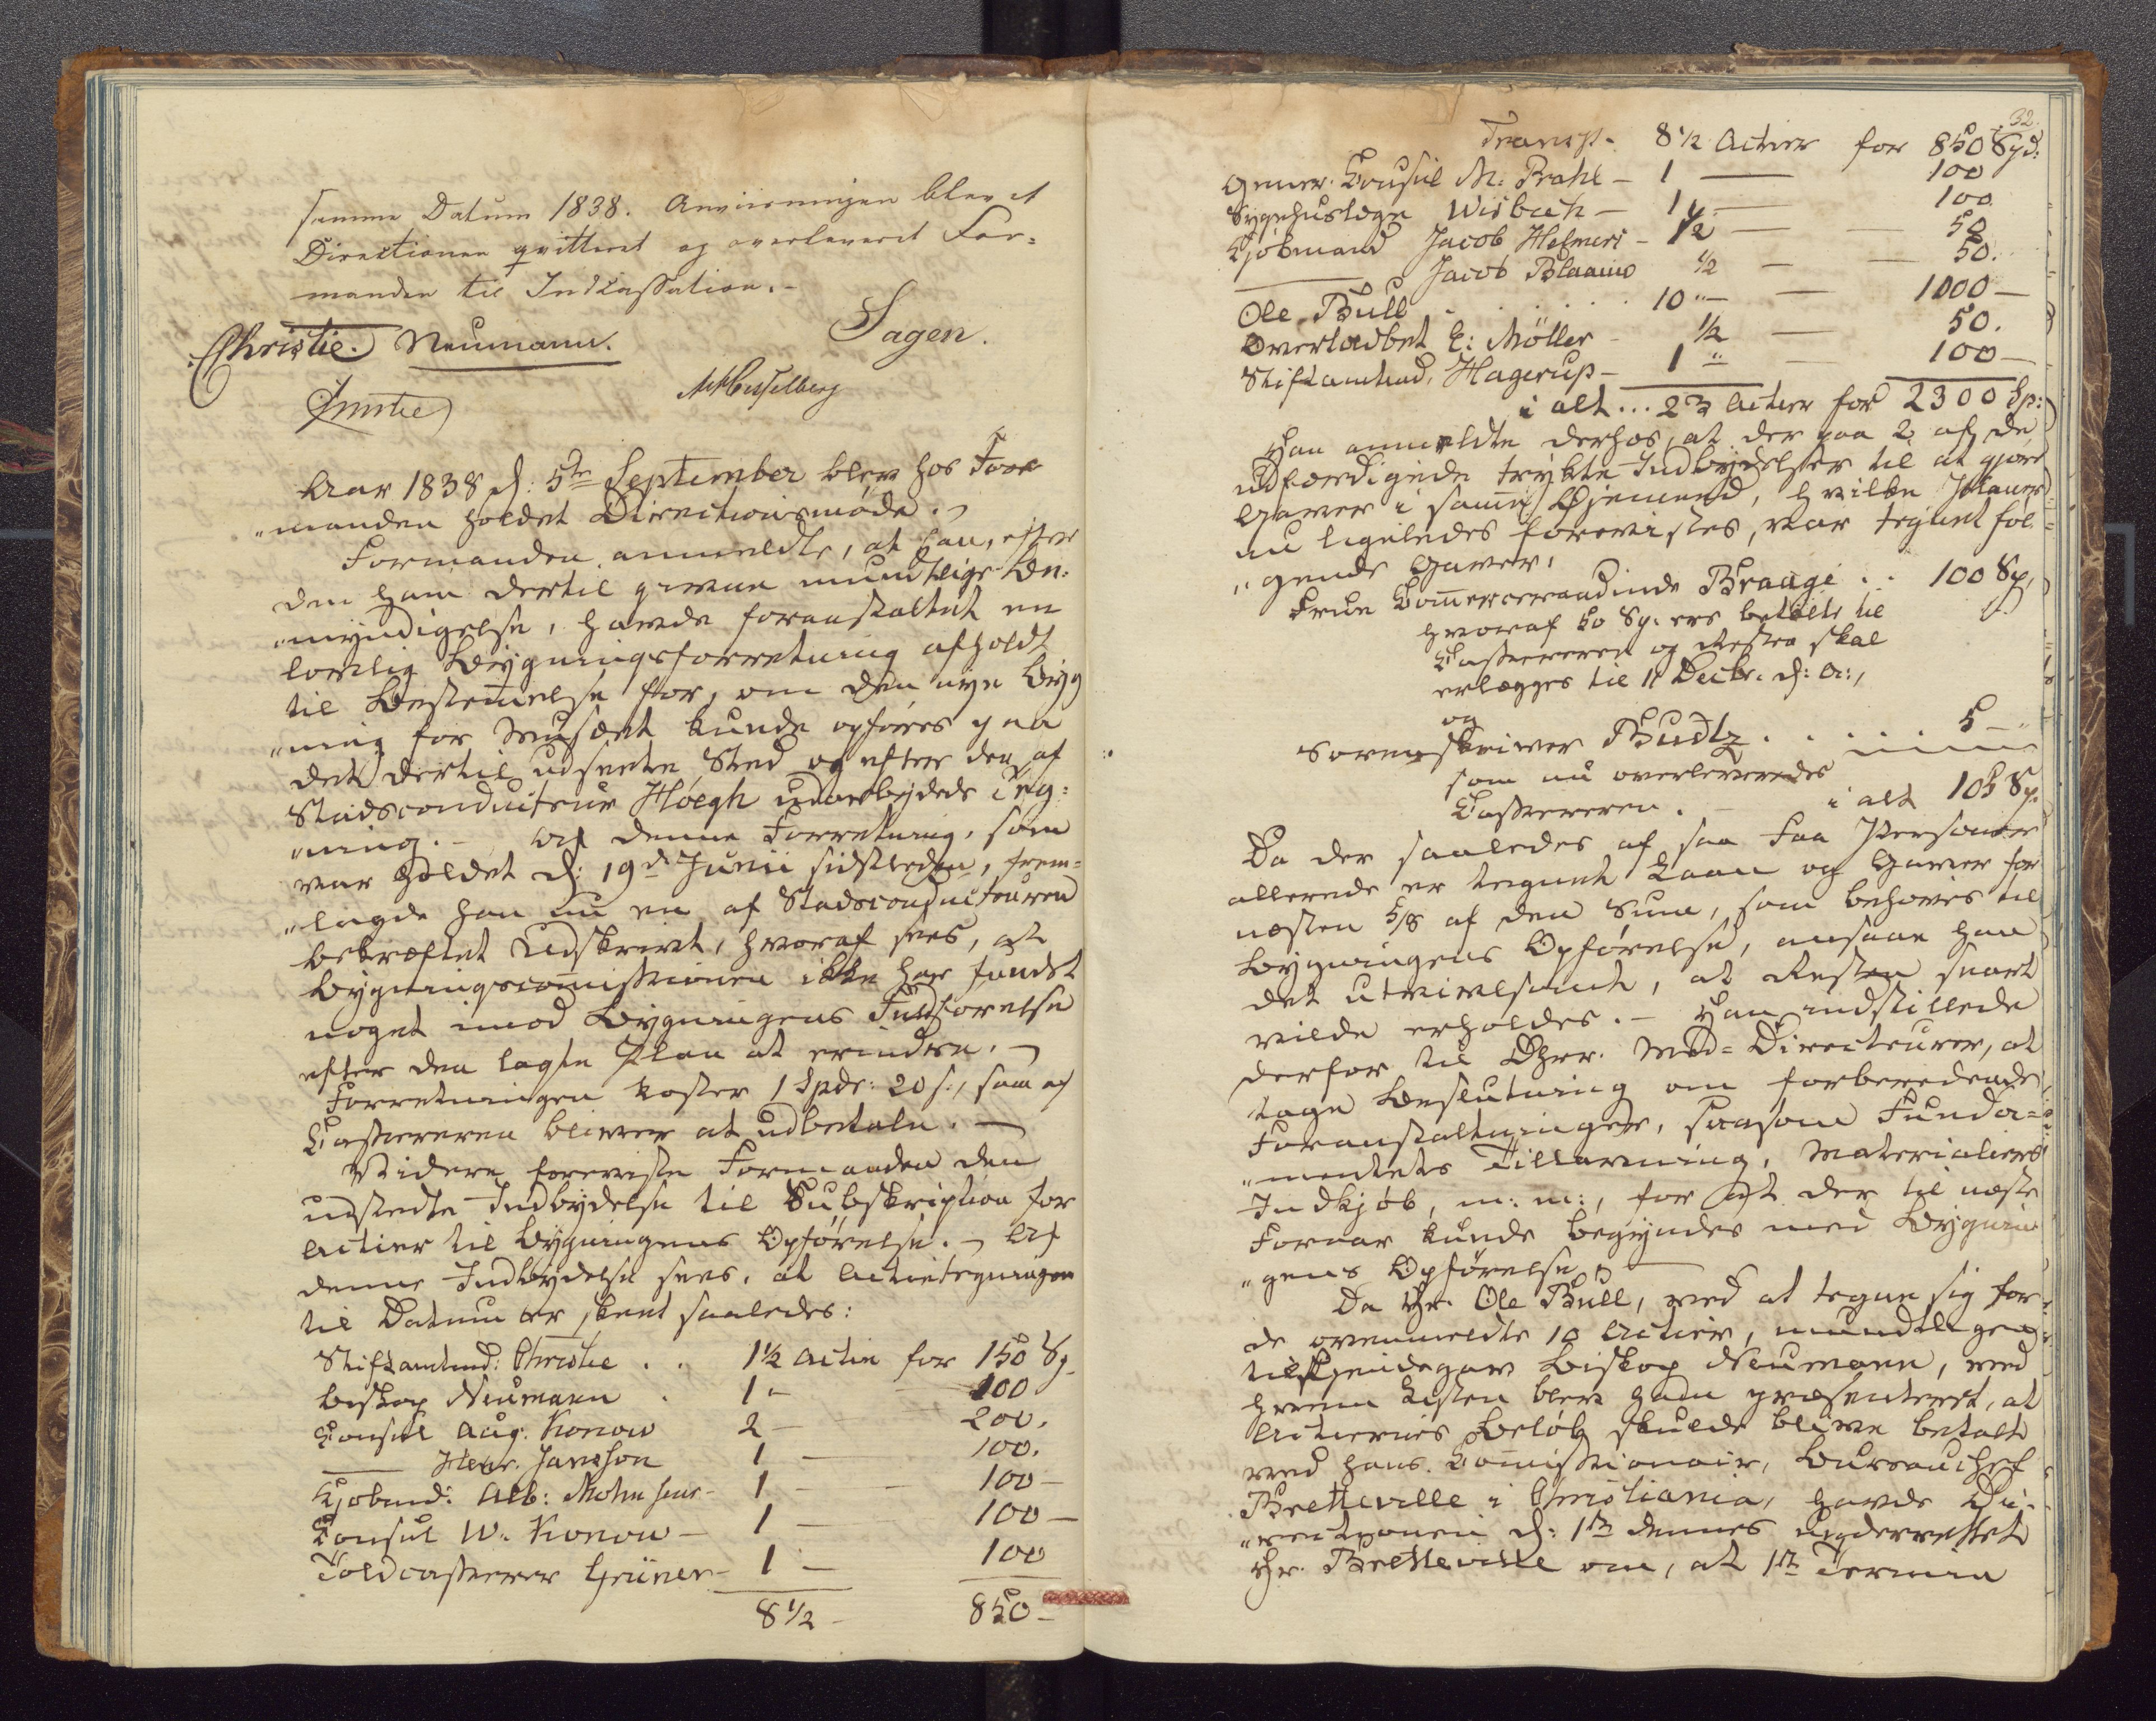 samme Datum 1838. Anviisningen blev af
Directionen qvitteret og overleveret For=
manden til Indkassation. -
Christie. Neumann. Sagen.
MHesselberg
Aar 1838 d: 5te September blev hos For
"manden holdet Directionsmøde. -
Formanden anmeldte, at han, efter
den ham dertil givne mundtlige Be=
"myndigelse, havde foranstaltet en
lovlig Bygningsforretning afholdt
til Bestemmelse for, om den nye Byg
"ning for Musæet kunde opføres paa
det dertil udseete Sted og efter den af
Stadsconducteur Høegh udarbejdede Teg=
"ning. - Af denne Forretning, som
var holdet d: 19d Junii sidstleden, frem=
"lagde han nu en af Stadsconducteuren
bekræftet Udskrivt, hvoraf sees, at
Bygningscommissionen ikke har fundet
noget imod Bygningens Fuldførelse
efter den lagte Plan at erindre. -
Forretningen koster 1 Spdr: 20 s., som af
Cassereren bliver at udbetale. -
Videre foreviste Formanden den
udstedte Indbydelse til Subskription for
Actier til Bygningens Opførelse. - Af
denne Indbydelse sees, at Actietegningen
til Datum er skeet saaledes:
Stiftamtmd: Christie . . 1½ Actie for 150 Sp.
Biskop Neumann . 1 - 100
Consul Aug. Konow 2 - 200.
—— Henr. Janson 1 - 100.
Kjøbmd: Alb: Mohn senr - 1 - 100 -
Consul W. Konow - 1 - 100 -
Toldcasserer Grüner - 1 - 100
8½ - 850 -
32.
Transp. 8½ Actier for 850 Spd:
Gener. Consul M: Prahl - 1 — 100
Sygehuslæge Wisbech - 1 — 100.
Kjøbmand Jacob Helmers - ½ — 50
—— Jacob Blaauw ½ — 50.
Ole Bull . . . . . 10 " — 1000 -
Overtoldbet. E: Möller - ½ — 50.
Stiftamtmd. Hagerup - 1 " — 100 -
i alt ... 23 Actier for 2300 Sp:
Han anmeldte derhos, at der paa 2 af de
udfærdigede trykte Indbydelser til at gjøre
Gaver i samme Øjemeed, hvilke Planer
nu ligeledes forevistes, var tegnet føl
"gende Gaver:
Frue Commerceraadinde Braage . . 100 Sp,
hvoraf 50 Sp. ere betalte til
Cassereren og Resten skal
erlægges til 11 Decbr. d: A:,
og
Sorenskriver Budtz . . . . . 5 - "
som nu overleveredes
Cassereren. - i alt 105 Sp.
Da der saaledes af saa faa Personer
allerede er tegnet Laan og Gaver for
næsten 5/8 af den Sum, som behøves til
Bygningens Opførelse, ansaae han
det utvivlsomt, at Resten snart
vilde erholdes. - Han indstillede
derfor til DHrr. Med=Directeurer, at
tage Beslutning om forberedende
Foranstaltninger, saasom Funda=
"mentets Tillavning, Materialiers
Indkjøb, m: m:, for at der til næste
Foraar kunde begyndes med Bygnin
"gens Opførelse. -
Da Hr. Ole Bull, ved at tegne sig for
de ovenmeldte 10 Actier, mundtligen
tilkjendegav Biskop Neumann, ved
hvem Listen blev ham præsenteret, at
Actiernes Beløb skulde blive betalt
ved hans Commissionair, Bureauchef
Bretteville i Christiania, havde Di=
"rectionen d: 1ste dennes underrettet
Hr. Bretteville om, at 1ste Termin